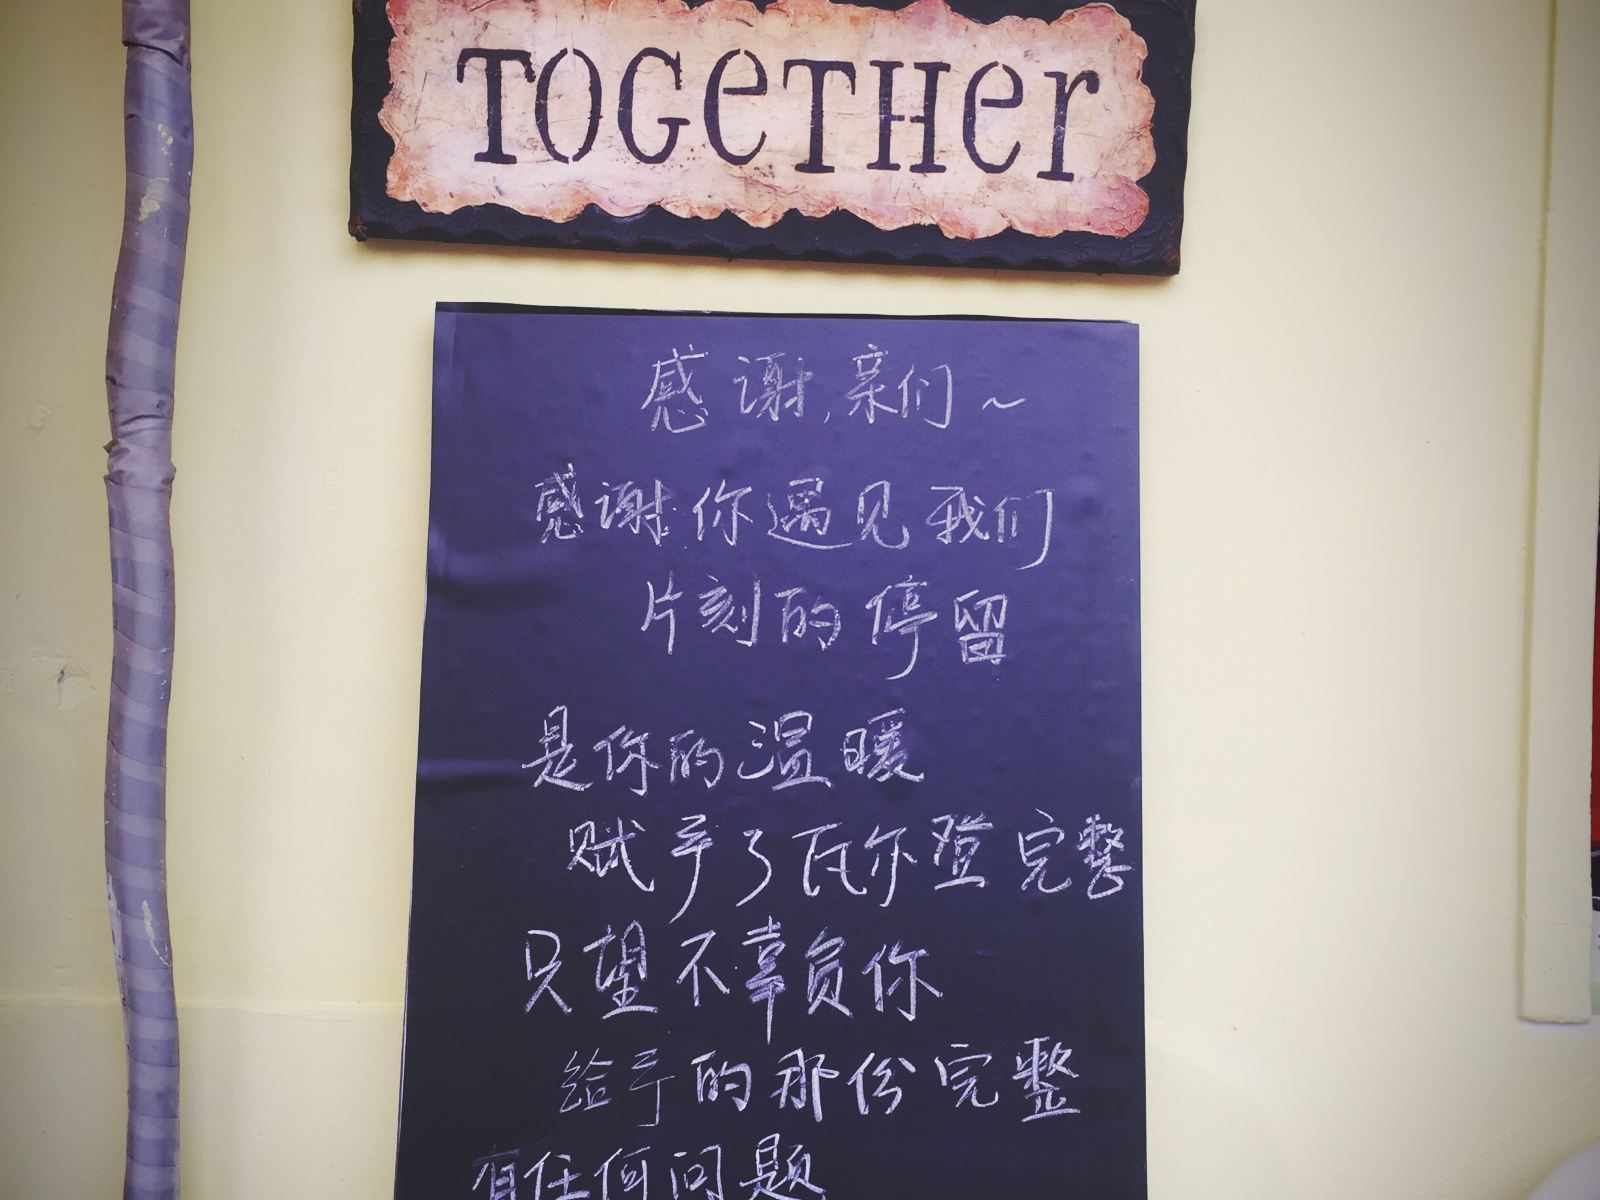 TOGeTHer
感谢,亲们~
感谢你遇见我们
片刻的停留
是你的温暖
赋予了瓦尔登完整
只望不辜负你
给予的那份完整
有任何问题